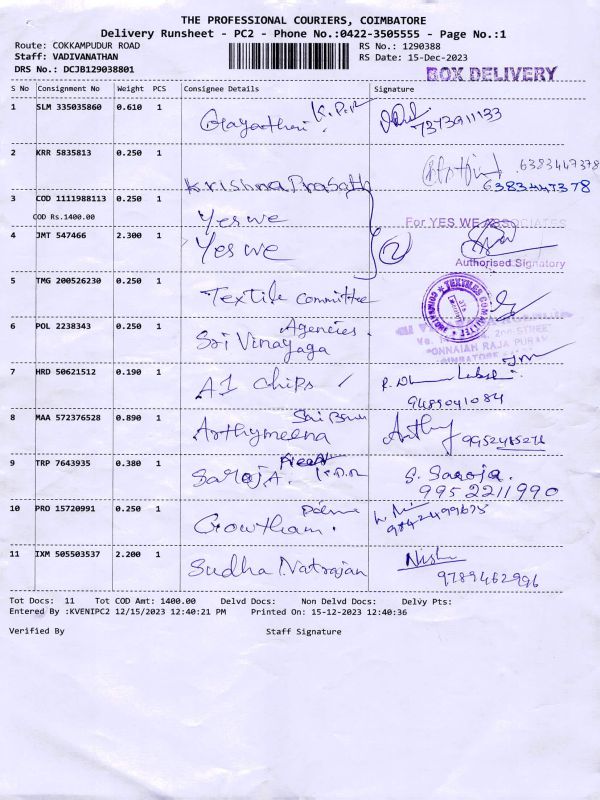 THE PROFESSIONAL COURIERS, COIMBATORE
Delivery Runsheet - PC2 - Phone No.:0422-3505555 - Page No.:1
Route: COKKAMPUDUR ROAD
Staff: VADIVANATHAN
DRS No.: DCJB129038801
RS No.: 1290388
RS Date: 15-Dec-2023
BOX DELIVERY
S No Consignment No Weight PCS Consignee Details Signature
1 SLM 335035860 0.610 1 Gayatheri K.P.R 7373911133
2 KRR 5835813 0.250 1 Krishna Prasath 6383447378
6383447378
3 COD 1111988113 0.250 1 Yes we For YES WE ASSOCIATES
COD Rs.1400.00
4 JMT 547466 2.300 1 Yes we 2
Authorised Signatory
5 TMG 200526230 0.250 1 Textile committee
TEXTILES COMMITTEE
6 POL 2238343 0.250 1 Sri Vinayaga Agencies.
2nd STREET
PONNAIAN RAJA PURAM
COIMBATORE
7 HRD 50621512 0.190 1 A1 chips
9489041084
8 MAA 572376528 0.890 1 Arthymeena Sai
9952485276
9 TRP 7643935 0.380 1 Saroja. S. Saroja.
9952211990
10 PRO 15720991 0.250 1 Gowtham.
9842499675
11 IXM 505503537 2.200 1 Sudha Natrajan Nish
9789462996
Tot Docs: 11 Tot COD Amt: 1400.00 Delvd Docs: Non Delvd Docs: Delvy Pts:
Entered By :KVENIPC2 12/15/2023 12:40:21 PM Printed On: 15-12-2023 12:40:36
Verified By Staff Signature